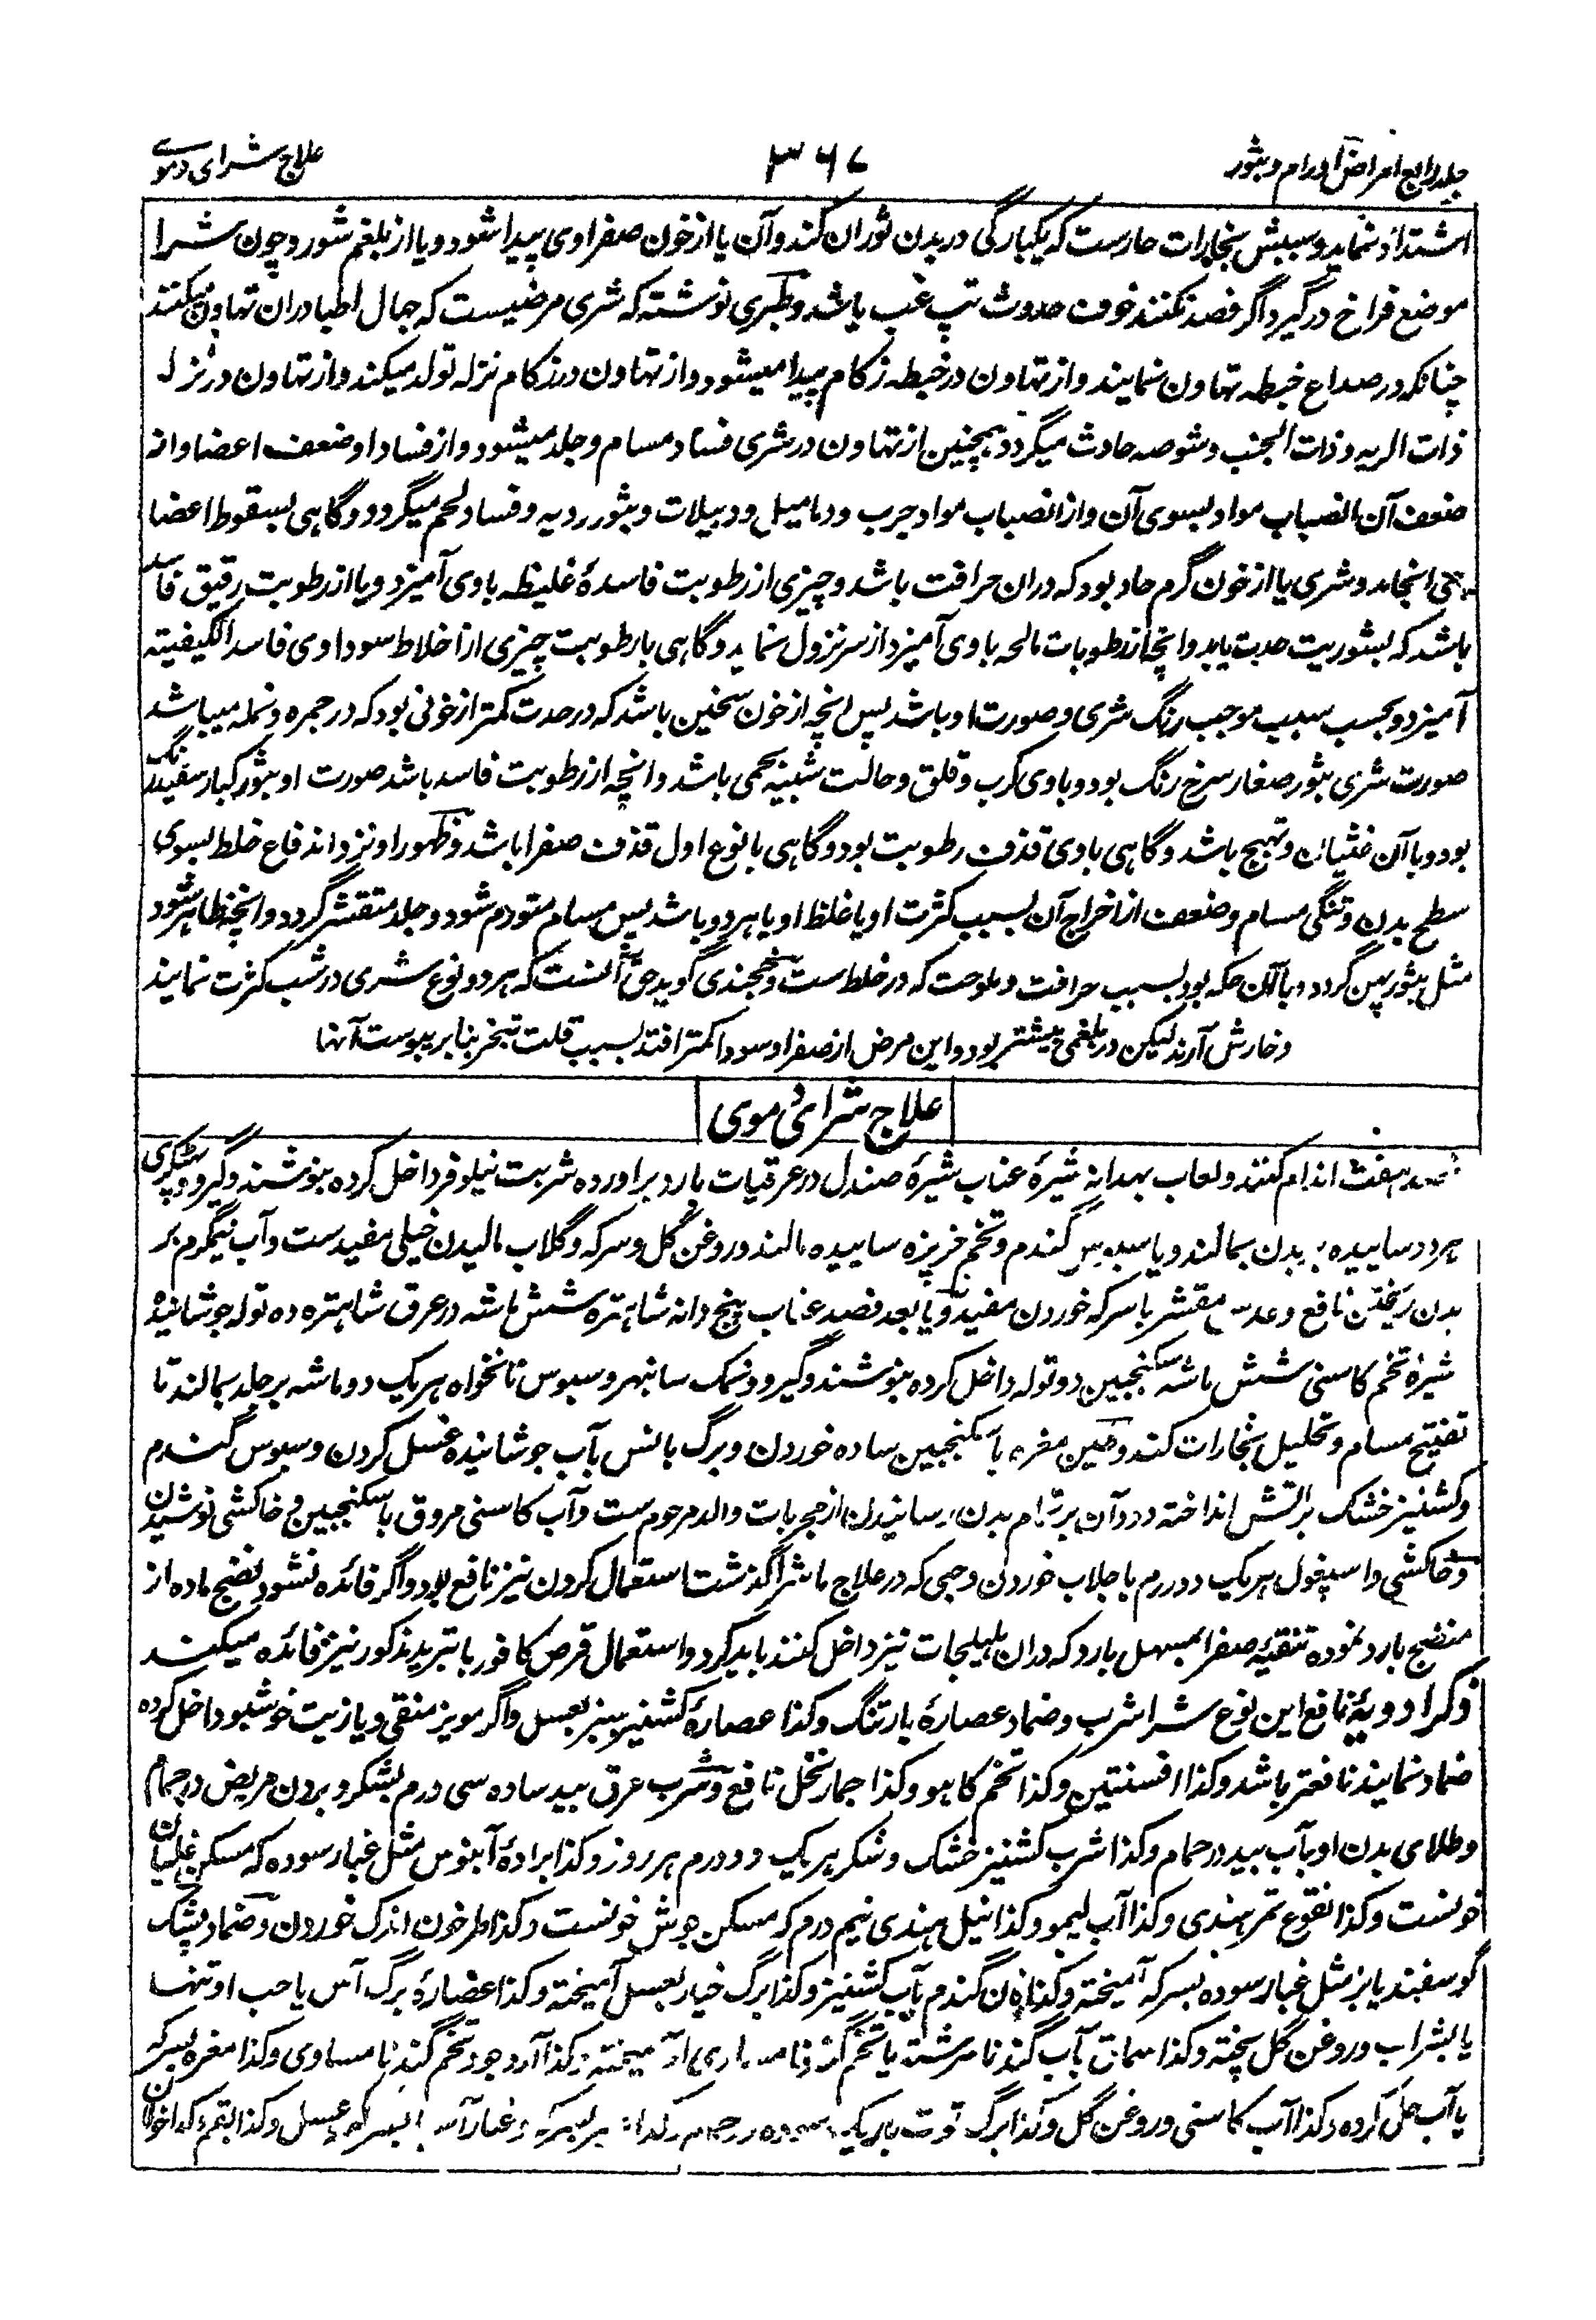 جلد رابع امراض اورام و بثور
۳۶۷
علاج شرای دموی
اشتداد نماید و سببش بخارات حارست که یکبارگی در بدن ثوران کند و آن یا از خون صفراوی پیدا شود و یا از بلغم شور و چون شرا
موضع فراخ درگیرد اگر فصد نکنند خوف حدوث تپ غب باشد و طبری نوشته که شری مرضیست که جهال اطبا در ان تهاون میکنند
چنانکه در صداع خبطه تهاون نمایند و از تهاون در خبطه زکام پیدا میشود و از تهاون در زکام نزله تولد میکند و از تهاون در نزله
ذات الریه و ذات الجنب و شوصه حادث میگردد همچنین از تهاون در شری فساد مسام و جلد میشود و از فساد او ضعف اعضا و از
ضعف آن انصباب مواد بسوی آن و از انصباب مواد جرب و دمامیل و دبیلات و بثور ردیه و فساد لحم میگردد و گاهی بسقوط اعضا
انجامد و شری یا از خون گرم حاد بود که دران حرافت باشد و چیزی از رطوبت فاسدهٔ غلیظه باوی آمیزد و یا از رطوبت رقیق فاسد
باشد که بشوریت حدت یابد و انچه از رطوبات مالحه باوی آمیزد از سر نزول نماید و گاهی بارطوبت چیزی از اخلاط سوداوی فاسد الکیفیته
آمیزد و بحسب سبب موجب رنگ شری و صورت او باشد پس انچه از خون سخین باشد که در حدت کمتر از خونی بود که در جمره و نمله میباشد
صورت شری بثور صغار سرخ رنگ بود و باوی کرب و قلق و حالت شبیه بحمی باشد و انچه از رطوبت فاسد باشد صورت او بثور کبار سفید رنگ
بود و با آن غثیان و تهیج باشد و گاهی باوی قذف رطوبت بود و گاهی با نوع اول قذف صفرا باشد و ظهور او نزد اندفاع خلط بسوی
سطح بدن و تنگی مسام و ضعف از اخراج آن بسبب کثرت او یا غلظ او یا هر دو باشد پس مسام متورم شود و جلد متقشر گردد و انچه ظاهر شود
مثل بثور پهن گردد و با آن حکه بود بسبب حرافت و ملوحت که در خلط ست و خجندی گوید حق آنست که هر دو نوع شری در شب کثرت نمایند
و خارش آرند لیکن در بلغمی بیشتر بود و این مرض از صفرا و سودا کمتر افتد بسبب قلت تبخر بنابر یبوست آنها
علاج شرای دموی
فصد هفت اندام کنند و لعاب بهدانه شیرهٔ عناب شیرهٔ صندل در عرقیات بارد برآورده شربت نیلوفر داخل کرده بنوشند و گیرو و پھٹکری
هر دو ساییده بر بدن بمالند و یا سبوس گندم و تخم خرپزه ساییده مالند و روغن گل و سرکه و گلاب مالیدن خیلی مفیدست و آب نیمگرم بر
بدن ریختن نافع و عدس مقشر با سرکه خوردن مفید و یا بعد فصد عناب پنج دانه شاهتره شش ماشه در عرق شاهتره ده توله جوشانیده
شیرهٔ تخم کاسنی شش ماشه سکنجبین دو توله داخل کرده بنوشند و گیرو و نمک سانبهر و سبوس نانخواه هریک دو ماشه بر جلد بمالند تا
تفتیح مسام و تحلیل بخارات کند و طین مغره با سکنجبین ساده خوردن و برگ بانس بآب جوشانیده غسل کردن و سبوس گندم
و کشنیز خشک بر آتش انداخته دود آن بر تمام بدن رسانیدن از مجربات والد مرحوم ست و آب کاسنی مروق با سکنجبین و خاکشی نوشیدن
و خاکشی و اسپغول هریک دو درم با جلاب خوردن و حبی که در علاج ماشرا گذشت استعمال کردن نیز نافع بود و اگر فائده نشود نضج ماده از
منضج بارد نموده تنقیهٔ صفرا بمسهل بارد که دران هلیلجات نیز داخل کنند باید کرد و استعمال قرص کافور با تبرید مذکور نیز فائده میکند
ذکر ادویهٔ نافع این نوع شرا شرب و ضماد عصارهٔ بارتنگ و کذا عصارهٔ کشنیز سبز بعسل و اگر مویز منقی و یا زیت خوشبو داخل کرده
ضماد نمایند نافعتر باشد و کذا افسنتین و کذا تخم کاهو و کذا جمار نخل نافع و شرب عرق بید ساده سی درم بشکر و بردن مریض در حمام
و طلای بدن او بآب بید در حمام و کذا شرب کشنیز خشک و شکر هریک دو درم هر روز و کذا برادهٔ آبنوس مثل غبار سوده که مسکن غلیان
خونست و کذا نقوع تمر هندی و کذا آب لیمو و کذا نیل هندی نیم درم که مسکن جوش خونست و کذا طرخون اندک خوردن و ضماد پشک
گوسفند یا بز مثل غبار سوده بسرکه آمیخته و کذا نان گندم بآب کشنیز و کذا برگ خیار بعسل آمیخته و کذا عصارهٔ برگ آس یا حب او تنها
یا بشراب و روغن گل پخته و کذا سماق بآب گندنا سرشته یا تخم گندنا مساوی او آمیخته و کذا آرد جو و تخم گندنا مساوی و کذا مغره بسرکه
یا آب حل کرده و کذا آب کاسنی و روغن گل و کذا برگ توت باریک سوده در حمام بسرکه و عسل و کذا